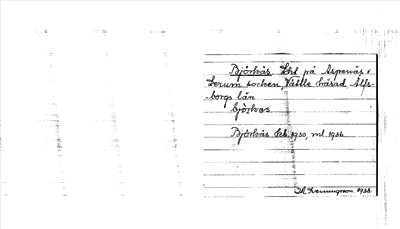 Björkås Lht på Aspenäs,
Lerum socken, Vättle härad, Älfs-
borgs län
björkås
Björkås Eeb. 1930, ml 1936
Henningsson 1938